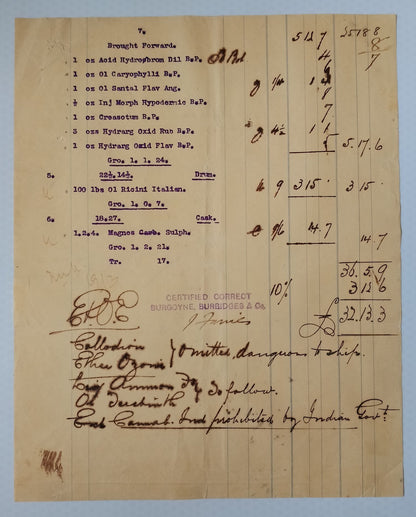 7.
Brought Forward. 5 14 7 25 18 8
1 oz Acid Hydrobrom Dil B.P. 4 8
1 oz Ol Caryophylli B.P. 7
1 oz Ol Santal Flav Ang.
½ oz Inj Morph Hypodermic B.P. 8
1 oz Creasotum B.P. 7
3 ozs Hydrarg Oxid Rub B.P.
1 oz Hydrarg Oxid Flav B.P. 5. 17. 6
Gro. 1. 1. 24.
5. 22½.14½. Drum.
100 lbs Ol Ricini Italian. 9 3 15 . 3 15 .
Gro. 1. 0. 7.
6. 18.27. Cask.
1.2.4. Magnes Carb. Sulph. 9/6 14.7 14.7
Gro. 1. 2. 21.
Tr. 17.
36. 5. 9
10% 3 12 6
CERTIFIED CORRECT
BURGOYNE, BURBIDGES & Co.
£ 32. 13. 3
E. & O. E
Collodion
Ether Ozonic } Omitted, dangerous to ship.
Liq Ammon
Ol Terebinth } To follow.
Ext Cannab. Ind prohibited by Indian Govt.